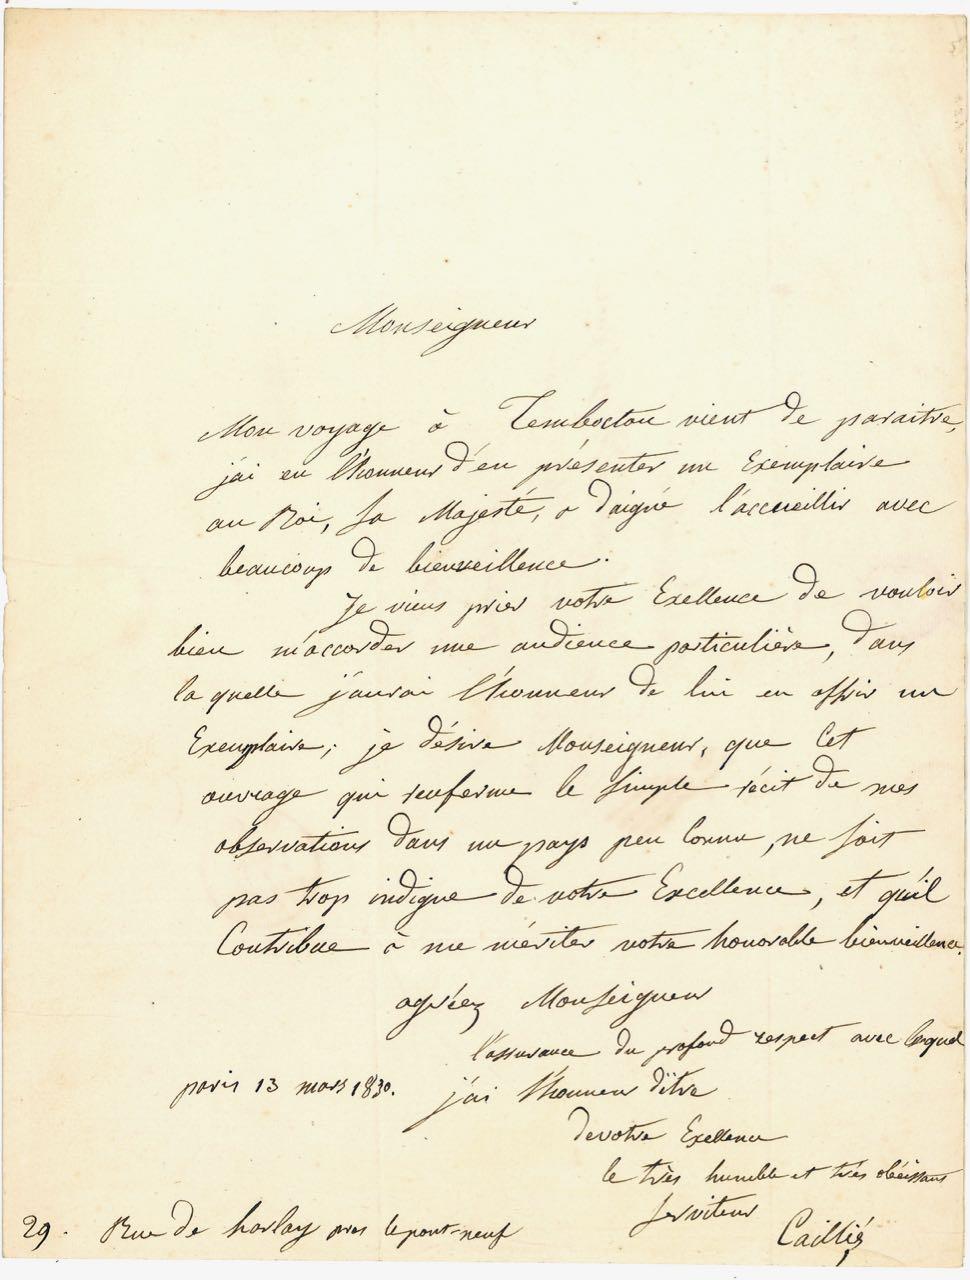 Monseigneur
Mon voyage à Temboctou vient de paraitre,
j'ai eu l'honneur d'en présenter un Exemplaire
au Roi, Sa Majesté, a daigné l'accueillir avec
beaucoup de bienveillence.
Je viens prier votre Exellence de vouloir
bien m'accorder une audience particulière, dans
la quelle j'aurai l'honneur de lui en offrir un
Exemplaire; je désire Monseigneur, que Cet
ouvrage qui renferme le simple récit de mes
observations dans un pays peu Connu, ne soit
pas trop indigne de votre Excellence, et qu'il
Contribue à me mériter votre honorable bienveillence.
agréez Monseigneur
l'assurance du profond respect avec lequel
j'ai l'honneur d'être
paris 13 mars 1830.
de votre Exellence
le très humble et très obéissant
serviteur
Caillié
29. Rue de harlay pres le pont-neuf